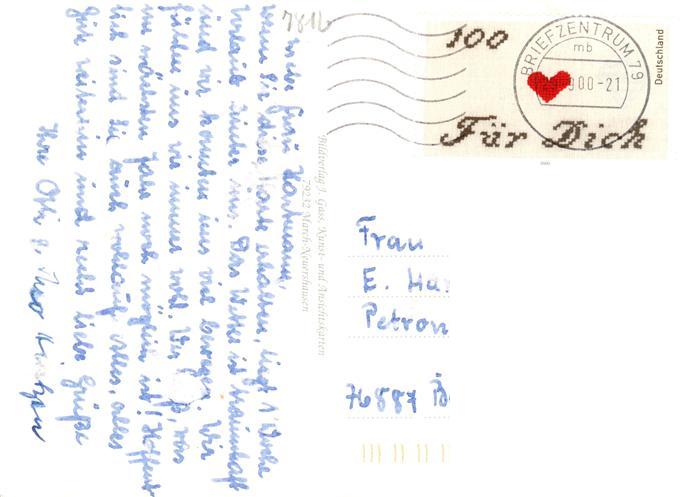 Liebe Frau Hartmann,
wenn Sie diese Karte erhalten, liegt 1 Woche
Urlaub hinter uns. Das Wetter ist traumhaft
und wir konnten uns viel bewegen. Wir
fühlen uns wie immer wohl. Wer was
im nächsten Jahr noch möglich ist! Hoffent-
lich sind Sie auch wohlauf. Alles, alles
Gute weiterhin und recht liebe Grüße
Ihre Otti u. Theo
Bildverlag J. Gass, Kunst- und Ansichtskarten
79232 March-Neuershausen
100
Für Dich
Deutschland
2000
BRIEFZENTRUM 79
mb
00-21
Frau
E. Har
Petron
76887 B